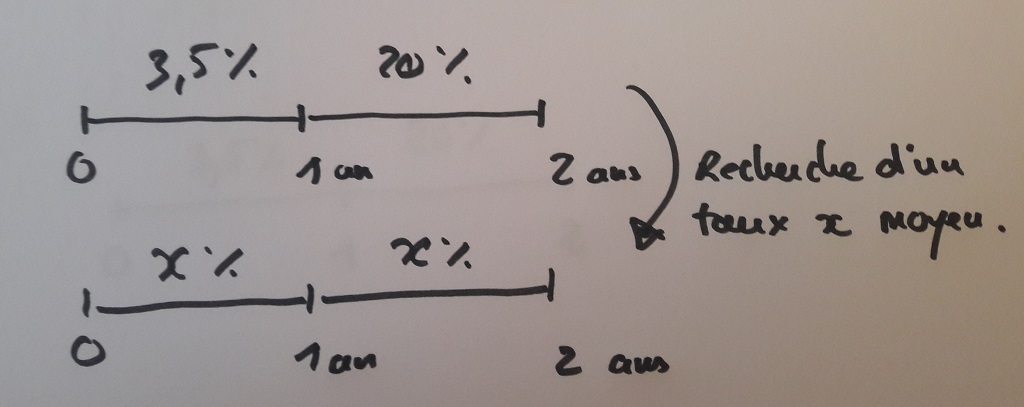 3,5% 20%
0 1 an 2 ans
Recherche d'un
taux x moyen.
x% x%
0 1 an 2 ans